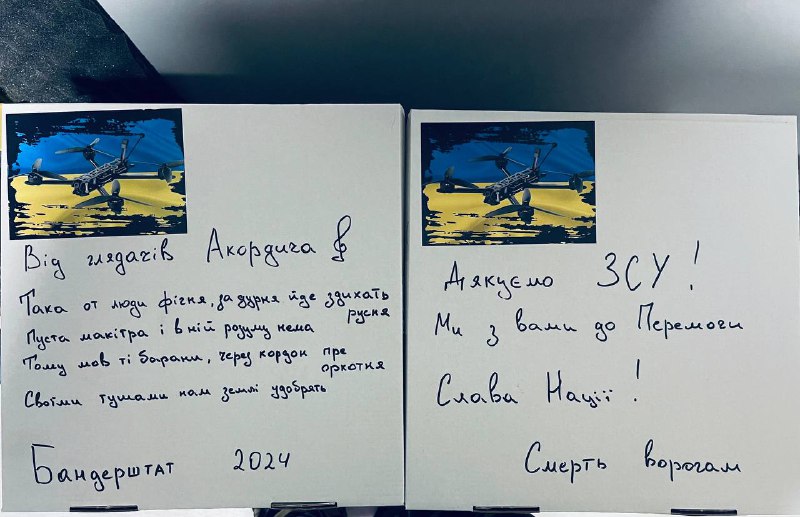 Від глядачів Акордича
Така от люди фігня, за дурня йде здихать
русня
Пуста макітра і в ній розуму нема
Тому мов ті барани, через кордон пре
оркотня
Своїми тушами нам землі удобрять
Бандерштат 2024
Дякуємо ЗСУ!
Ми з вами до Перемоги
Слава Нації!
Смерть ворогам